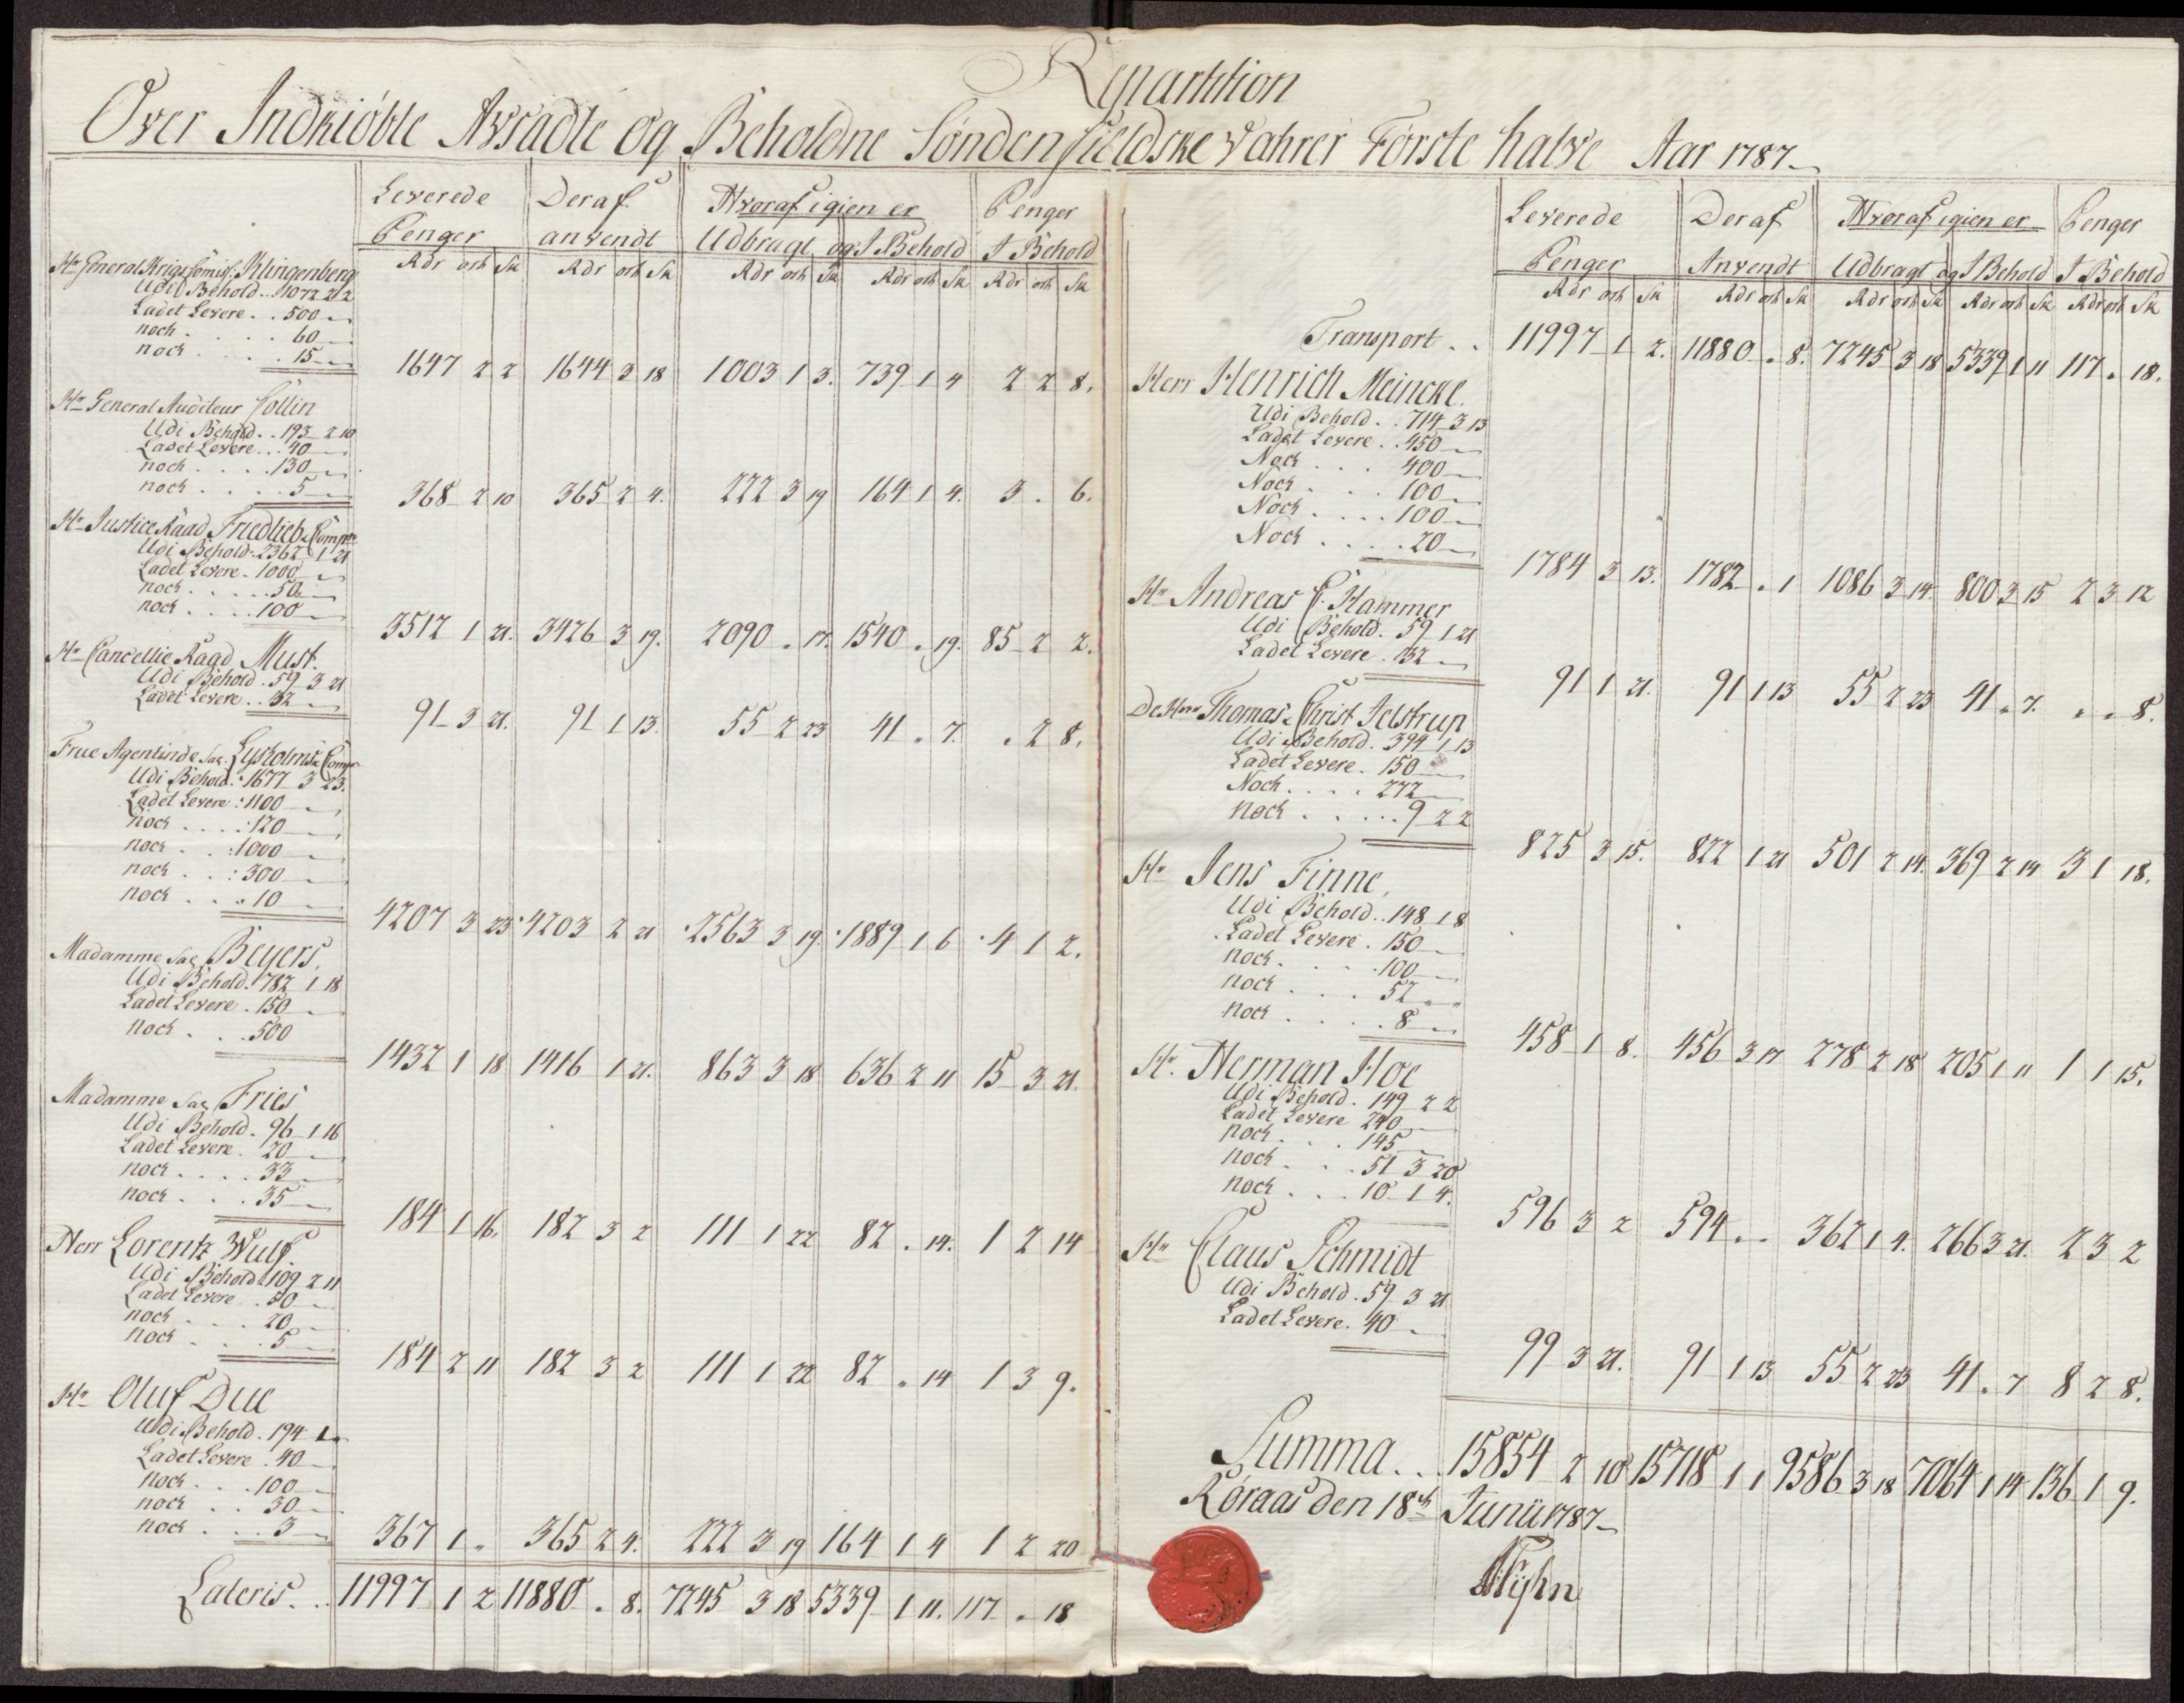 Repartition
Over Indkiöbte Avsadte og Beholdne Søndenfieldske Vahrer Første halve Aar 1787
Leverede Penger Deraf anvendt Hvoraf igien er Udbragt og I Behold Penger I Behold
Rdr ort Sk Rdr ort Sk Rdr ort Sk Rdr ort Sk Rdr ort Sk
Hr General Krigs Comiss. Klingenberg
Udi Behold . . 1072 2 2
Ladet Levere . . 500
noch . . . 60
noch . . . 15
1647 2 2 1644 3 18 1003 1 3. 739 1 4 2 2 8.
Hr General Auditeur Collin
Udi Behold . . 193 2 10
Ladet Levere . . 40
noch . . . . 130
noch . . . . 5
368 2 10 365 2 4. 222 3 19 164 1 4. 3 . 6.
Hr Justice Raad Friedlieb & Comp
Udi Behold . 2362 1 21
Ladet Levere . 1000
noch . . . . 50
noch . . . . 100
3512 1 21. 3426 3 19. 2090 . 17. 1540 . 19. 85 2 2.
Hr Cancellie Raad Must.
Udi Behold . 59 3 21
Ladet Levere . . 32
91 3 21. 91 1 13. 55 2 23 41 . 7. . 2 8.
Frue Agentinde Sal. Lysholms & Comp
Udi Behold . 1677 3 23.
Ladet Levere . 1100
noch . . . . 120
noch . . . 1000
noch . . . 300
noch . . . 10
4207 3 23 4203 2 21 2563 3 19 1889 1 6 4 1 2.
Madamme Sal Beyers,
Udi Behold . 782 1 18
Ladet Levere . 150
noch . . . 500
1432 1 18 1416 1 21. 863 3 18 636 2 11 15 3 21.
Madamme Sal Fries
Udi Behold . 96 1 16
Ladet Levere . 20
noch . . . . 33
noch . . . 35
184 1 16. 182 3 2 111 1 22 82 . 14. 1 2 14
Herr Lorentz Wulf.
Udi Behold 109 2 11
Ladet Levere . . 50
noch . . . . 20
noch . . . . 5
184 2 11 182 3 2 111 1 22 82 . 14 1 3 9.
Hr Oluf Due
Udi Behold . 194 1
Ladet Levere . 40
noch . . . 100
noch . . . 30
noch . . . 3
367 1 . 365 2 4. 222 3 19 164 1 4 1 2 20
Lateris . . 11997 1 2 11880 . 8. 7245 3 18 5339 1 11. 117 . 18
Leverede Penger Deraf Anvendt Hvoraf igien er Udbragt og I Behold Penger I Behold
Rdr ort Sk Rdr ort Sk Rdr ort Sk Rdr ort Sk Rdr ort Sk
Transport . . 11997 1 2. 11880 . 8. 7245 3 18 5339 1 11 117 . 18.
Herr Henrich Meincke.
Udi Behold . . 714 3 13
Ladet Levere . . 450
Noch . . . 400
Noch . . . 100
Noch . . . . 100
Noch . . . . 20
1784 3 13. 1782 . 1 1086 3 14. 800 3 15 2 3 12
Hr Andreas Hammer
Udi Behold . 59 1 21
Ladet Levere . 32
91 1 21. 91 1 13 55 2 23 41 . 7. . . 8.
De Hrr Thomas & Christ Jelstrup
Udi Behold . 394 1 13
Ladet Levere . 150
Noch . . . . 272
noch . . . . . 9 2 2
825 3 15. 822 1 21 501 2 14. 369 2 14 3 1 18.
Hr Jens Finne,
Udi Behold . . 148 1 8
Ladet Levere . 150
noch . . . . 100
noch . . . 52
noch . . . . 8
458 1 8. 456 3 17 278 2 18 205 1 11 1 1 15.
Hr. Herman Hoe
Udi Behold . 149 2 2
Ladet Levere 240
noch . . . 145
noch . . . 51 3 20
noch . . . 10 1 4.
596 3 2 594 . . 362 1 4. 266 3 21. 2 3 2
Hr Claus Schmidt
Udi Behold . 59 3 21
Ladet Levere . 40
99 3 21. 91 1 13 55 2 23 41 . 7 8 2 8.
Summa . . 15854 2 10 15718 1 1 9586 3 18 7064 1 14 136 1 9.
Røraas den 18de Junii 1787